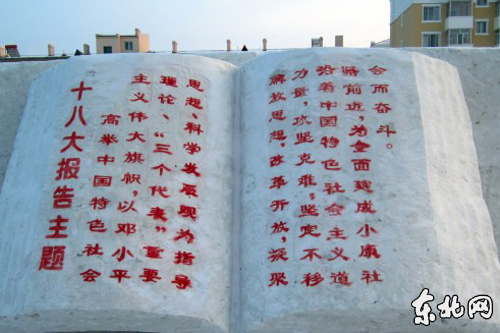 十八大报告主题
高举中国特色社会
主义伟大旗帜，以邓小平
理论、“三个代表”重要
思想、科学发展观为指导
解放思想，改革开放，凝聚
力量，攻坚克难，坚定不移
沿着中国特色社会主义道
路前进，为全面建成小康社
会而奋斗。
东北网